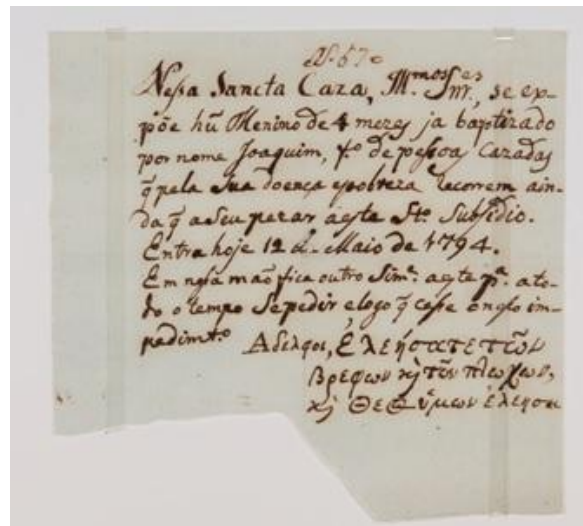 Nessa Sancta Caza, Il.mos Snr.es, se ex-
põe hũ Menino de 4 mezes ja baptizado
por nome Joaquim, f.o de pessoas cazadas
q̃ pela sua doença e pobreza recorrem ain-
da q̃ a seu pezar a este St.o Subsidio.
Entra hoje 12 d. Maio de 1794.
Em nossa mão fica outro Sim.e a este p.a a to-
do o tempo se pedir, e logo q̃ cesse o nosso im-
pedim.to
Αδελφοι, Ἐλεήσατε τῶν
βρεφων κỳ τῶν πλωχων,
κỳ Θεος ὑμων ἐλεησει